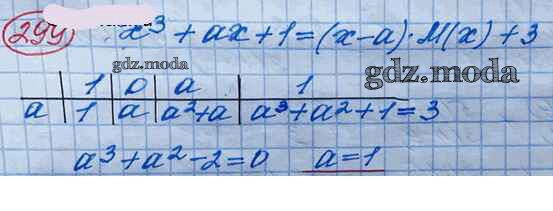 294 x³ + ax + 1 = (x-a)·M(x) + 3
gdz.moda
gdz.moda
1 0 a 1
a 1 a a²+a a³+a²+1=3
a³+a²-2=0 a=1